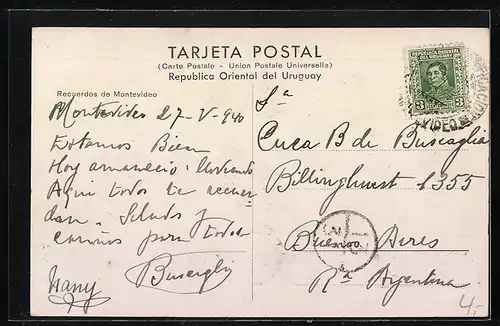 TARJETA POSTAL
(Carte Postale - Union Postale Universelle)
Republica Oriental del Uruguay
Recuerdos de Montevideo
Montevideo 27-V-940
Estamos Bien
Hoy amaneció lloviendo
Aqui todos te recuer
dan. Saludos y
cariños para todos
Buscaglia
REPUBLICA ORIENTAL
DEL URUGUAY
3 3
VIDEO
Sª
Cuca B de Buscaglia
Billinghurst 1355
Buenos Aires
Rª Argentina
4,-